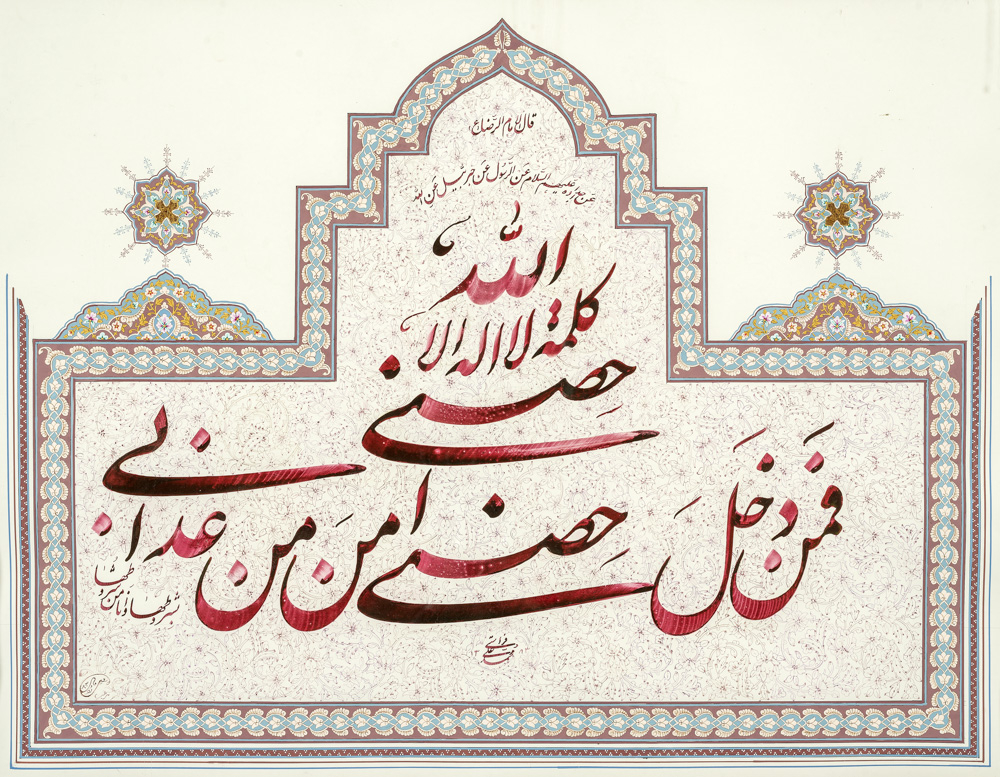 قال الامام الرضا ع
عن جده علیهم السلام عن الرسول عن جبرئیل عن الله
الله
كلمة لا اله الا
حصنی
فمن دخل حصنی امن من عذابی
بشروطها و انا من شروطها